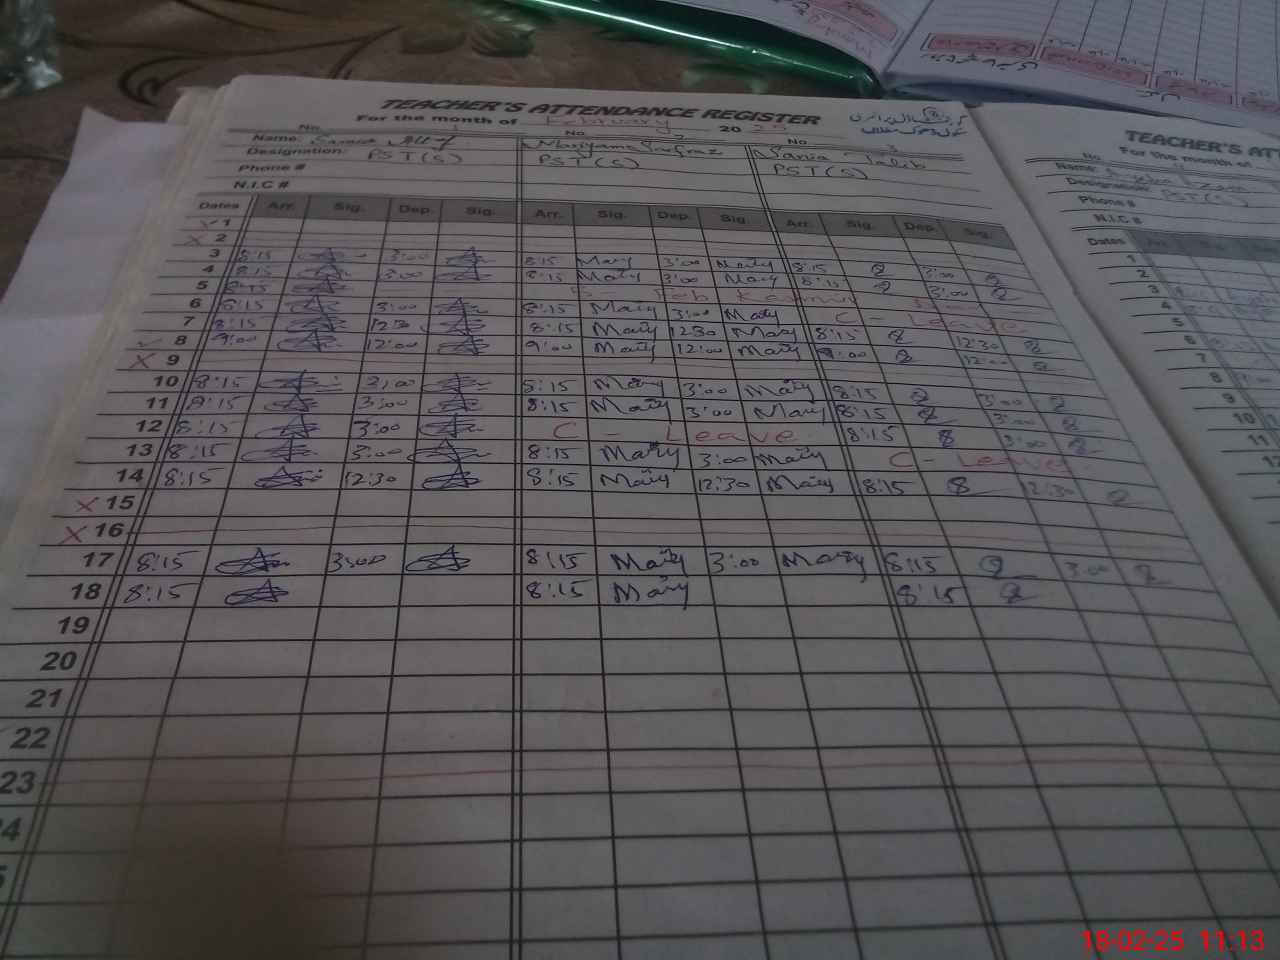 TEACHER'S ATTENDANCE REGISTER
For the month of February 2025
No. 1 No. 2 No. 3
Name: Mariyam Sarfraz Sania Talib
Designation: PST(S) PST(S) PST(S)
Phone #
N.I.C #
Dates Arr. Sig. Dep. Sig. Arr. Sig. Dep. Sig. Arr. Sig. Dep. Sig.
1
X 2
3 8:15 3:00 8:15 Mary 3:00 Mary 8:15 3:00
4 8:15 3:00 8:15 Mary 3:00 Mary 8:15 3:00
5 8:15
6 8:15 3:00 8:15 Mary 3:00 Mary C - Leave
7 8:15 12:30 8:15 Mary 12:30 Mary 8:15 12:30
8 9:00 12:00 9:00 Mary 12:00 Mary 9:00 12:00
X 9
10 8:15 3:00 8:15 Mary 3:00 Mary 8:15 3:00
11 8:15 3:00 8:15 Mary 3:00 Mary 8:15 3:00
12 8:15 3:00 C - Leave 8:15 3:00
13 8:15 3:00 8:15 Mary 3:00 Mary C - Leave
14 8:15 12:30 8:15 Mary 12:30 Mary 8:15 12:30
X 15
X 16
17 8:15 3:00 8:15 Mary 3:00 Mary 8:15 3:00
18 8:15 8:15 Mary 8:15
19
20
21
22
23
TEACHER'S
For the month of
No.
Name:
Designation: PST(S)
Phone #
N.I.C #
Dates
1
2
3
4
5
6
7
8
9
10
11
12
18-02-25 11:13